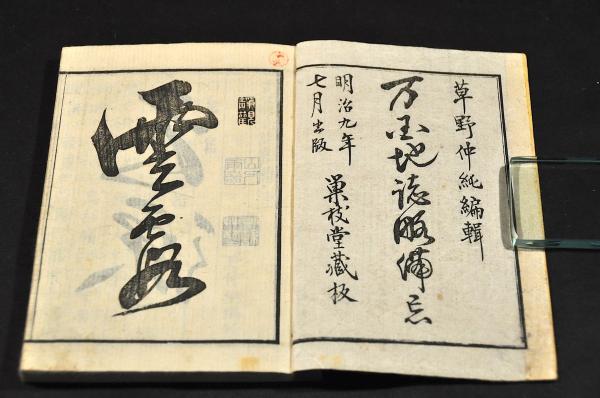 草野仲純編輯
万国地誌略備忘
明治九年
七月出版
巣枝堂藏板
雲